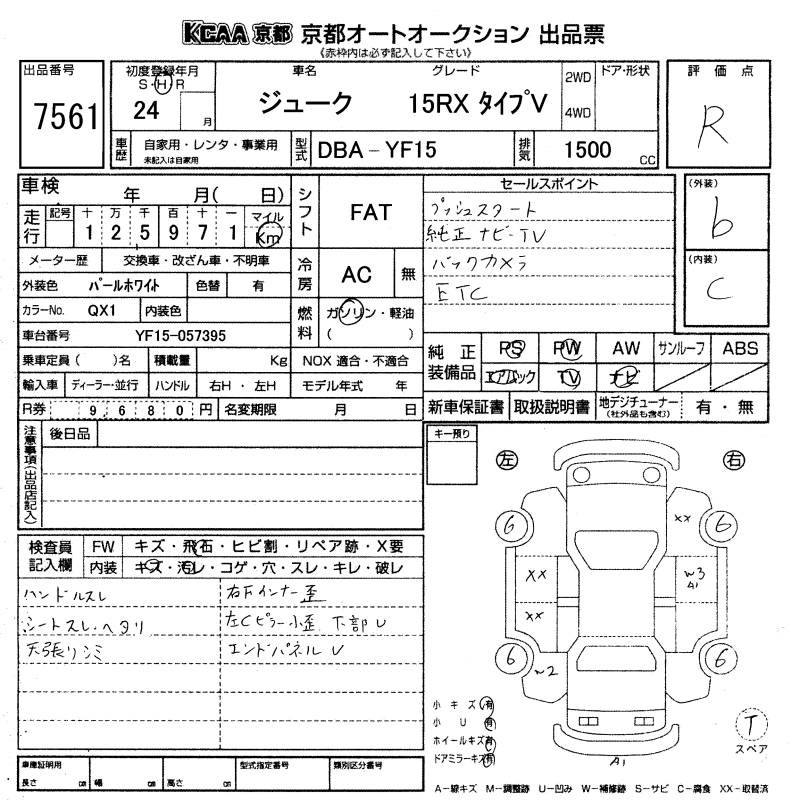 KCAA 京都 京都オートオークション 出品票
《赤枠内は必ず記入して下さい》
出品番号
7561
初度登録年月
S・H・R
24 月
車名
ジューク
グレード
15RX タイプV
2WD
4WD
ドア・形状
評価点
R
車歴
自家用・レンタ・事業用
未記入は自家用
型式
DBA－YF15
排気
1500 CC
車検 年 月( 日)
走行
記号 十 万 千 百 十 一 マイル
1 2 5 9 7 1 Km
メーター歴 交換車・改ざん車・不明車
外装色 パールホワイト 色替 有
カラーNo. QX1 内装色
車台番号 YF15-057395
乗車定員 ( )名 積載量 Kg
輸入車 ディーラー・並行 ハンドル 右H・左H
R券 9,680円 名変期限 月 日
シフト
FAT
冷房
AC 無
燃料
ガソリン・軽油
( )
NOX 適合・不適合
モデル年式 年
セールスポイント
プッシュスタート
純正ナビ-TV
バックカメラ
ETC
(外装)
b
(内装)
C
純正装備品
PS PW AW サンルーフ ABS
エアバック TV ナビ
新車保証書 取扱説明書 地デジチューナー (社外品も含む) 有・無
注意事項(出品店記入)
後日品
キー預り
左
右
6
6
6
6
XX
XX
XX
W3
A1
W2
A1
検査員記入欄
FW キズ・飛石・ヒビ割・リペア跡・X要
内装 キズ・汚レ・コゲ・穴・スレ・キレ・破レ
ハンドルスレ
シートスレ・ヘタリ
天張リシミ
右Fインナー歪
左Cピラー小歪 下部U
エンドパネルU
小キズ 有
小U 有
ホイールキズ 有
ドアミラーキズ 有
T
スペア
車庫証明用
長さ cm 幅 cm 高さ cm
型式指定番号
類別区分番号
A－線キズ M－調整跡 U－凹み W－補修跡 S－サビ C－腐食 XX－取替済